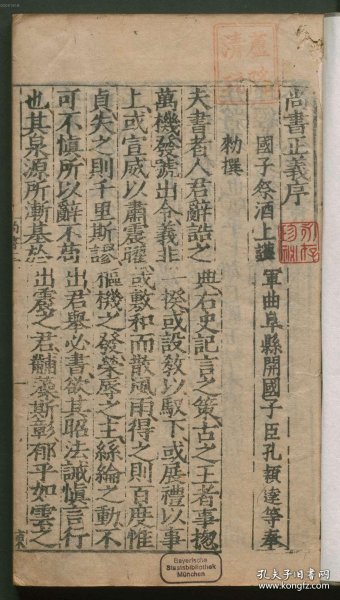 尚書正義序
國子祭酒上護軍曲阜縣開國子臣孔穎達等奉
勑撰
夫書者人君辭誥之典右史記言之策古之王者事揔
萬機發號出令義非一揆或設教以馭下或展禮以事
上或宣威以肅震曜或敷和而散風雨得之則百度惟
貞失之則千里斯謬樞機之發榮辱之主絲綸之動不
可不慎所以辭不苟出君舉必書欲其昭法誡慎言行
也其泉源所漸基於出震之君黼藻斯彰郁乎如雲之
Bayerische
Staatsbibliothek
München
孔夫子旧书网